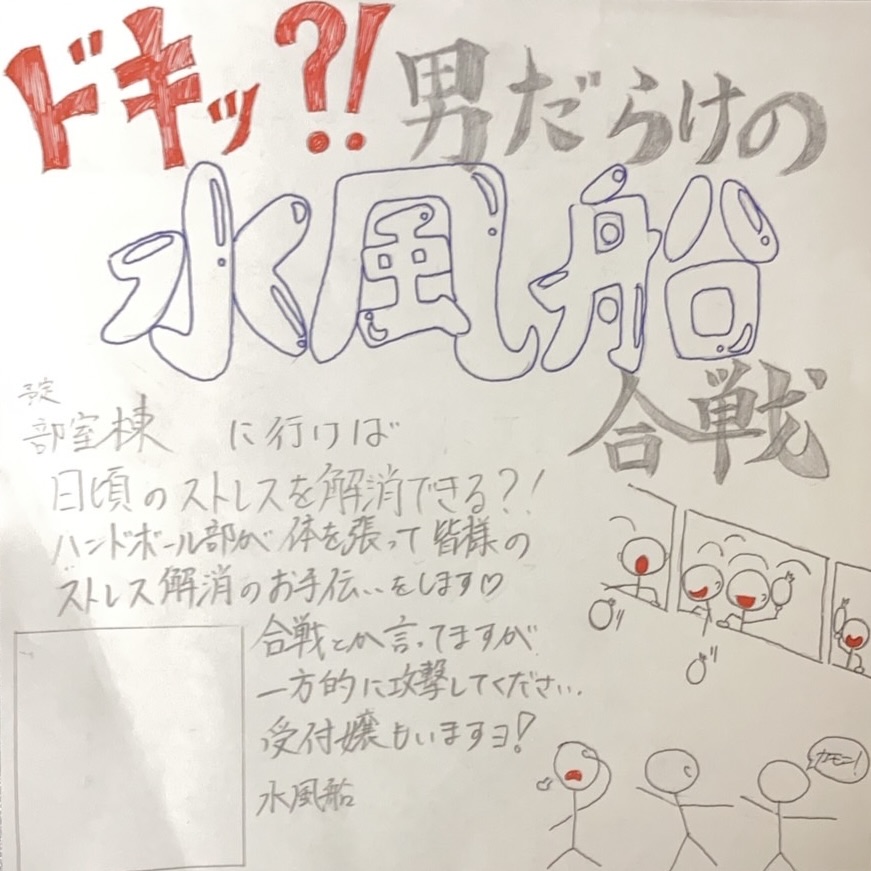 ドキッ?!男だらけの
水風船
合戦
予定
部室棟 に行けば
日頃のストレスを解消できる?!
ハンドボール部が体を張って皆様の
ストレス解消のお手伝いをします♡
合戦とか言ってますが
一方的に攻撃してください.
受付嬢もいますヨ!
水風船
カモン!